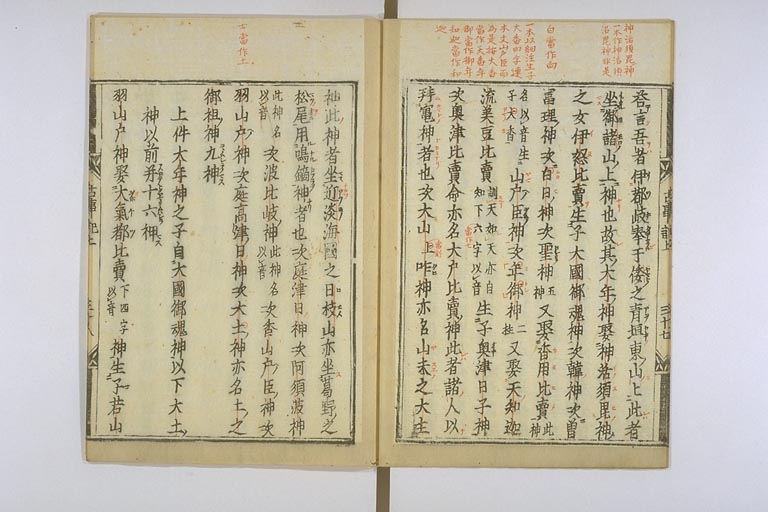 答言吾者伊都岐奉于倭之青垣東山上此者
坐御諸山上神也故其大年神娶神活須毘神
之女伊怒比賣生子大國御魂神次韓神次曽
冨理神次白日神次聖神五神又娶香用比賣此神
名以音生子大香山戸臣神次年御神二柱又娶天知迦
流美豆比賣訓天如天亦自知下六字以音生子奥津日子神
次奥津比賣命亦名大戸比賣神此者諸人以
拜竈神者也次大山上咋神亦名山末之大主
神此神者坐近淡海國之日枝山亦坐葛野之
松尾用鳴鏑神者也次庭津日神次阿須波神
此神名以音次波比岐神此神名以音次香山戸臣神次
羽山戸神次庭高津日神次大土神亦名土之
御祖神九神
上件大年神之子自大國御魂神以下大土
神以前并十六神
羽山戸神娶大氣都比賣下四字以音神生子若山
神活須毘神
一本作神活須
活毘神非是
白當作向
古當作土
古事記上
三十七
三十八